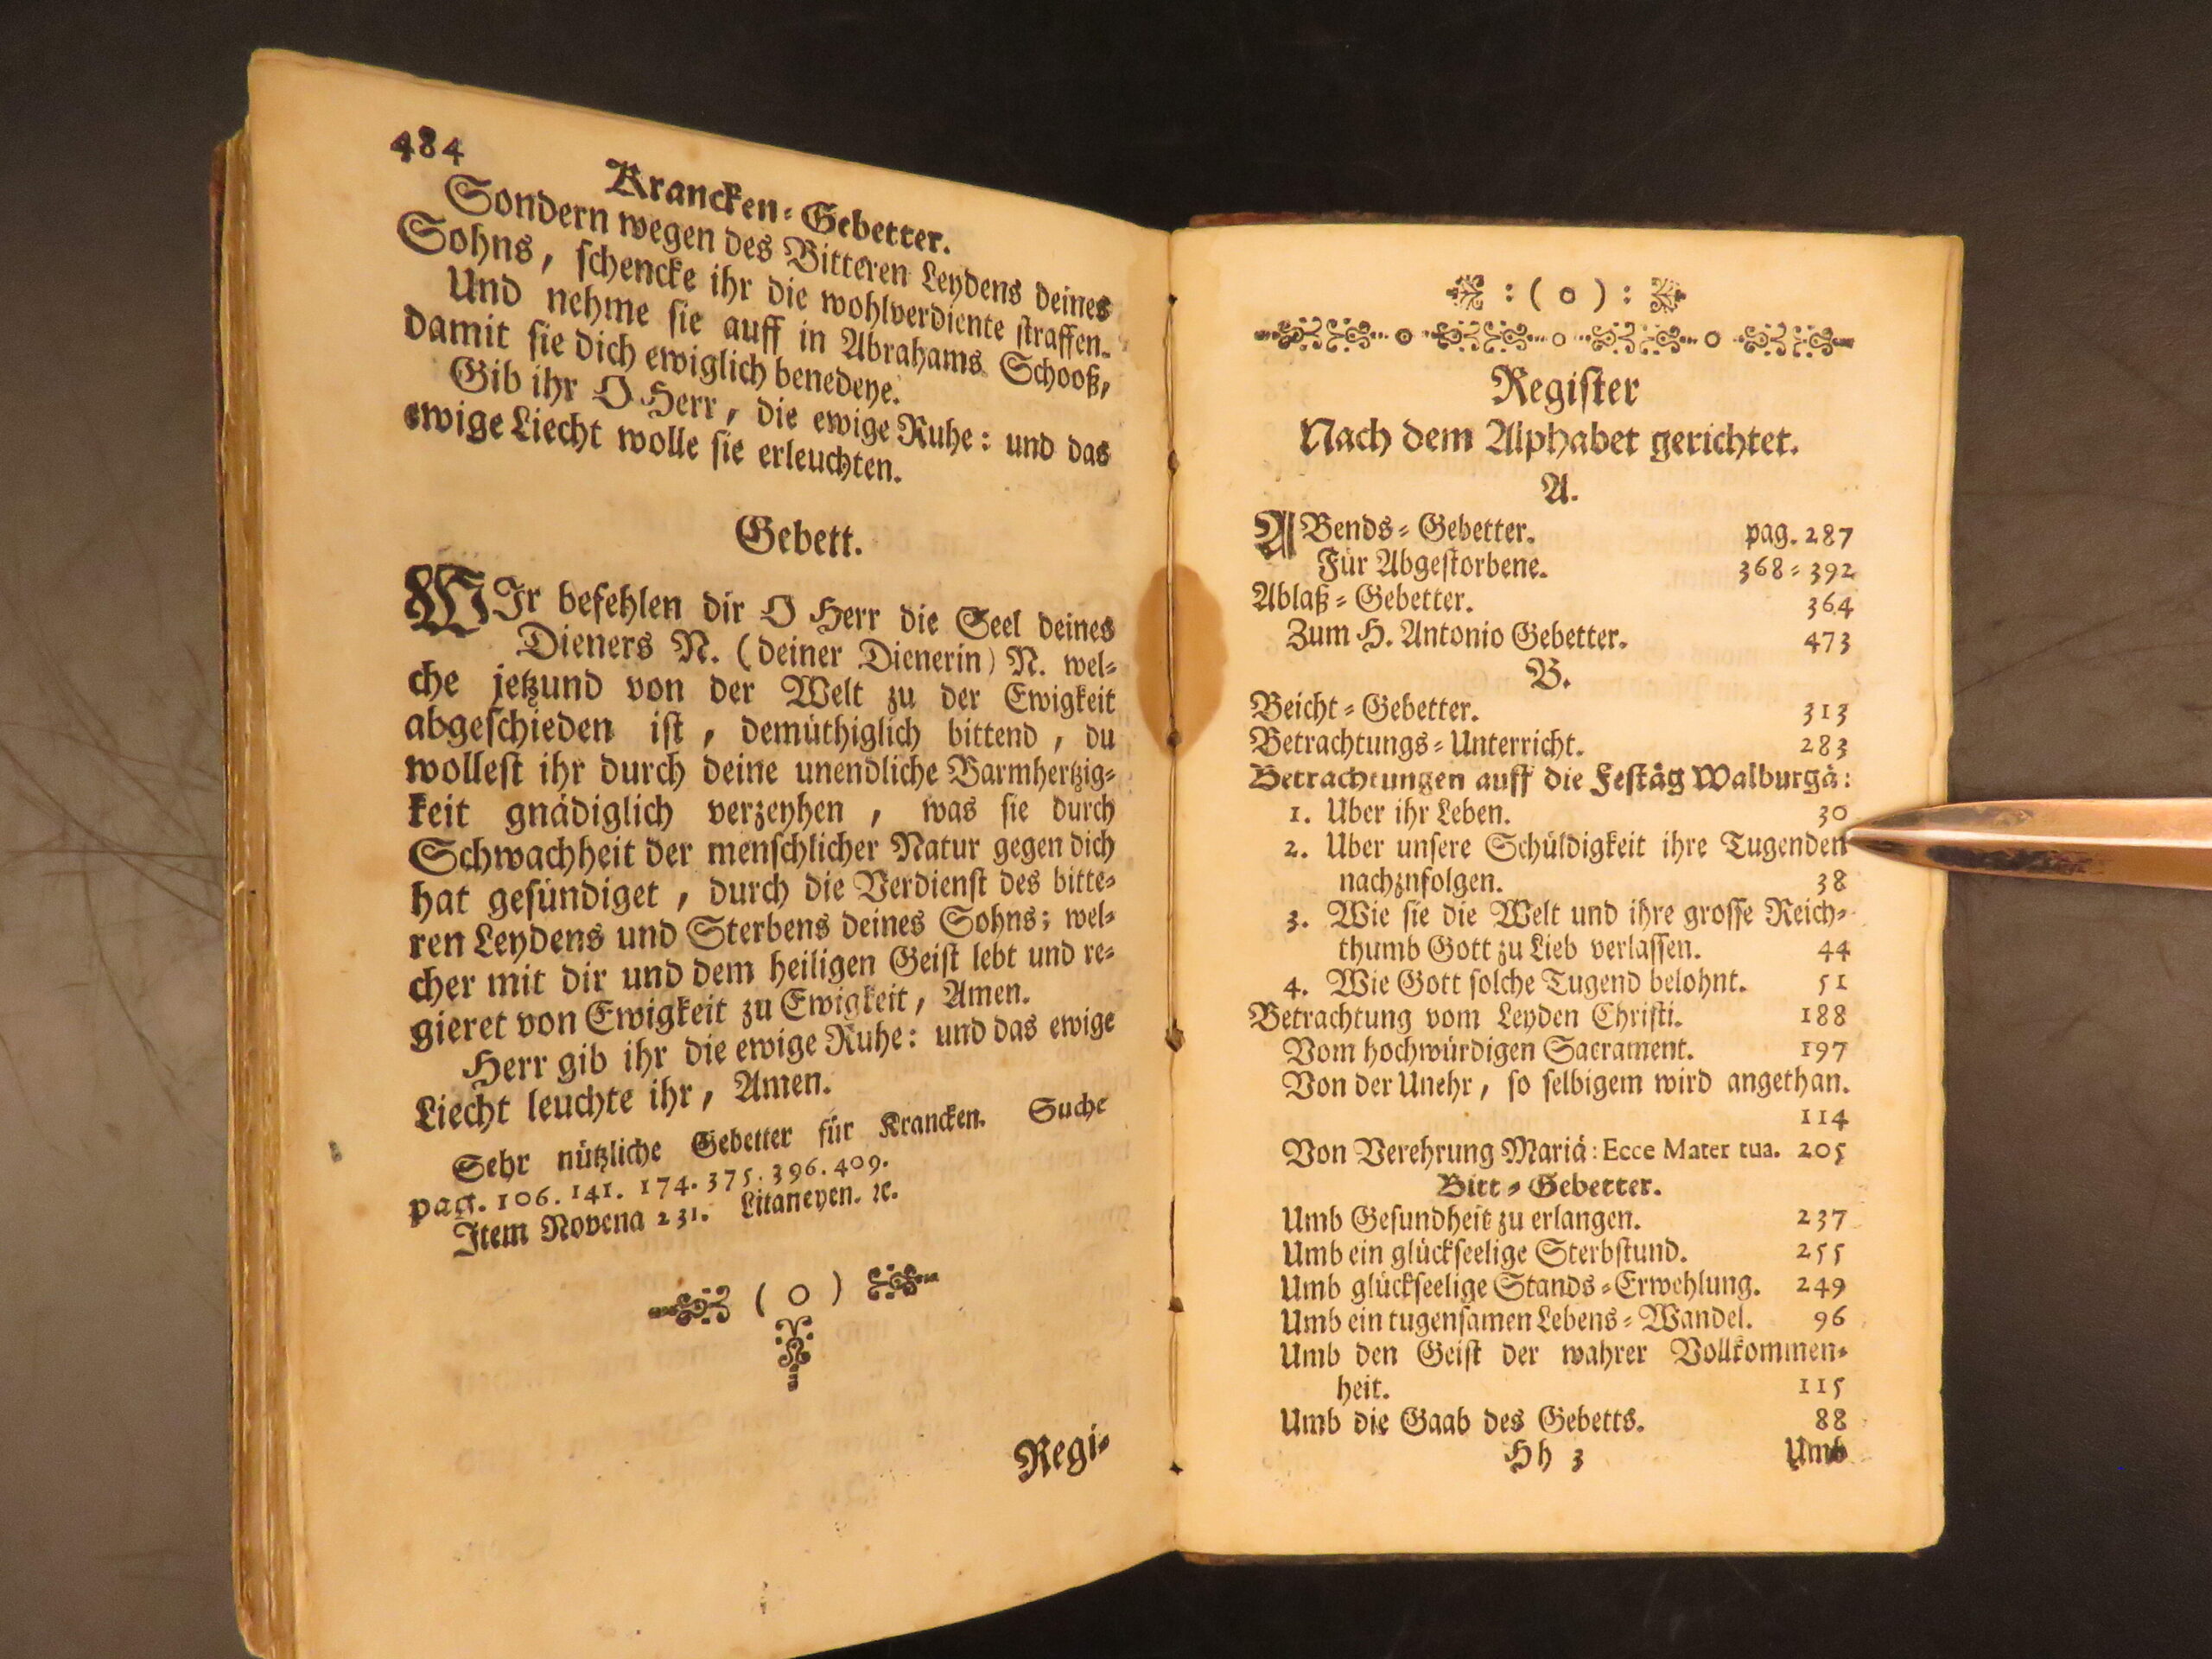 484
Krancken-Gebetter.
Sondern wegen des Bitteren Leydens deines
Sohns, schencke ihr die wohlverdiente straffen.
Und nehme sie auff in Abrahams Schooß,
damit sie dich ewiglich benedeye.
Gib ihr O Herr, die ewige Ruhe: und das
ewige Liecht wolle sie erleuchten.
Gebett.
WIr befehlen dir O Herr die Seel deines
Dieners N. (deiner Dienerin) N. wel-
che jetzund von der Welt zu der Ewigkeit
abgeschieden ist, demüthiglich bittend, du
wollest ihr durch deine unendliche Barmhertzig-
keit gnädiglich verzeyhen, was sie durch
Schwachheit der menschlicher Natur gegen dich
hat gesündiget, durch die Verdienst des bitte-
ren Leydens und Sterbens deines Sohns; wel-
cher mit dir und dem heiligen Geist lebt und re-
gieret von Ewigkeit zu Ewigkeit, Amen.
Herr gib ihr die ewige Ruhe: und das ewige
Liecht leuchte ihr, Amen.
Sehr nützliche Gebetter für Krancken. Suche
pag. 106. 141. 174. 375. 396. 409.
Item Novena 231. Litaneyen. ꝛc.
( O )
Regi-
: ( o ) :
Register
Nach dem Alphabet gerichtet.
A.
ABends-Gebetter. pag. 287
Für Abgestorbene. 368-392
Ablaß-Gebetter. 364
Zum H. Antonio Gebetter. 473
B.
Beicht-Gebetter. 313
Betrachtungs-Unterricht. 283
Betrachtungen auff die Festäg Walburgä:
1. Uber ihr Leben. 30
2. Uber unsere Schüldigkeit ihre Tugenden
nachznfolgen. 38
3. Wie sie die Welt und ihre grosse Reich-
thumb Gott zu Lieb verlassen. 44
4. Wie Gott solche Tugend belohnt. 51
Betrachtung vom Leyden Christi. 188
Vom hochwürdigen Sacrament. 197
Von der Unehr, so selbigem wird angethan.
114
Von Verehrung Mariä: Ecce Mater tua. 205
Bitt-Gebetter.
Umb Gesundheit zu erlangen. 237
Umb ein glückseelige Sterbstund. 255
Umb glückseelige Stands-Erwehlung. 249
Umb ein tugensamen Lebens-Wandel. 96
Umb den Geist der wahrer Vollkommen-
heit. 115
Umb die Gaab des Gebetts. 88
Hh 3 Umb